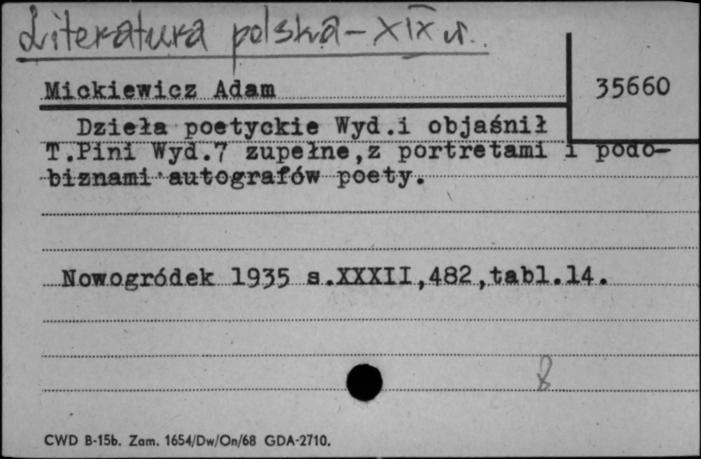 Literatura polska - XIX w.
Mickiewicz Adam
35660
Dzieła poetyckie Wyd.i objaśnił
T.Pini Wyd.7 zupełne,z portretami i podo-
biznami autografów poety.
Nowogródek 1935 s.XXXII,482,tabl.14.
8
CWD B-15b. Zam. 1654/Dw/On/68 GDA-2710.